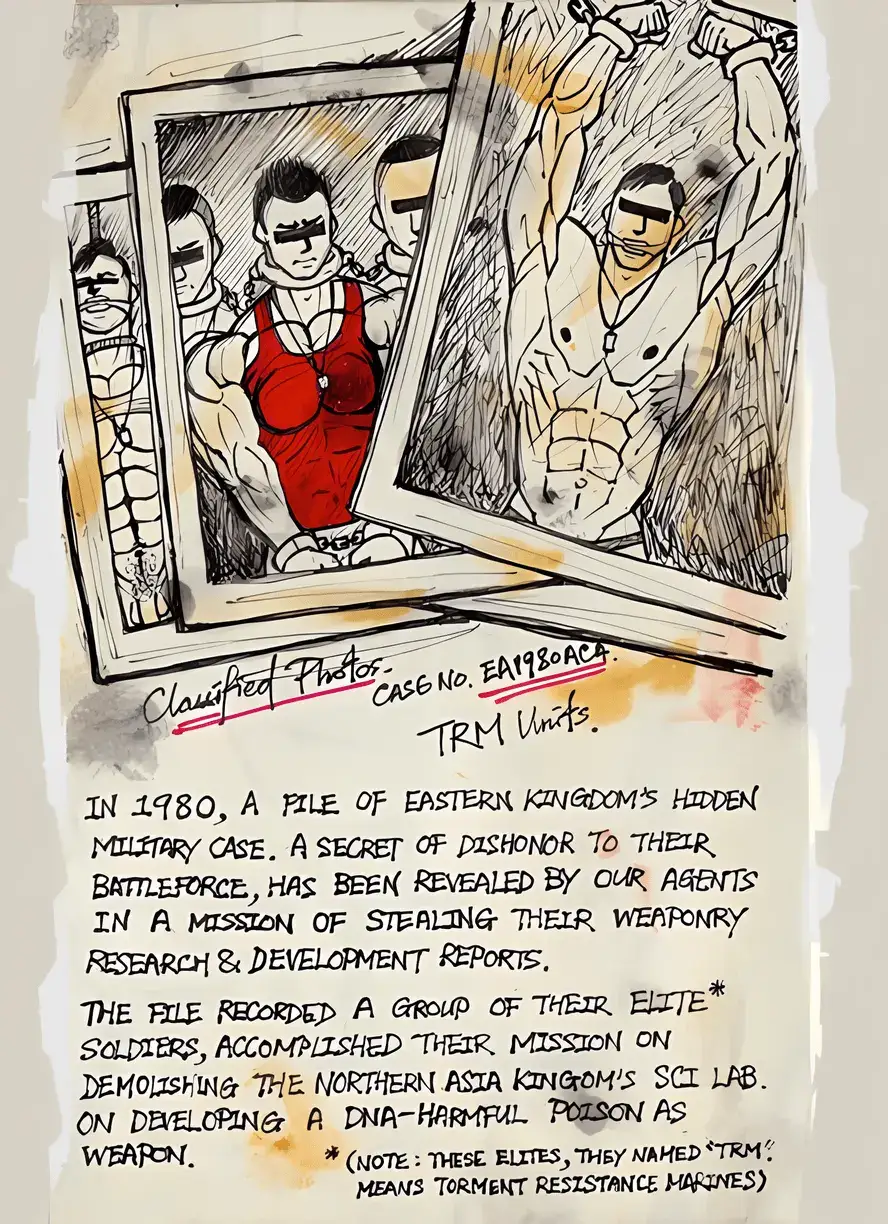 Classified Photos.
CASE NO. EA1980AC4.
TRM Units.
IN 1980, A FILE OF EASTERN KINGDOM'S HIDDEN
MILITARY CASE. A SECRET OF DISHONOR TO THEIR
BATTLEFORCE, HAS BEEN REVEALED BY OUR AGENTS
IN A MISSION OF STEALING THEIR WEAPONRY
RESEARCH & DEVELOPMENT REPORTS.
THE FILE RECORDED A GROUP OF THEIR ELITE*
SOLDIERS, ACCOMPLISHED THEIR MISSION ON
DEMOLISHING THE NORTHERN ASIA KINGOM'S SCI LAB.
ON DEVELOPING A DNA-HARMFUL POISON AS
WEAPON.
* (NOTE: THESE ELITES, THEY NAMED "TRM".
MEANS TORMENT RESISTANCE MARINES)